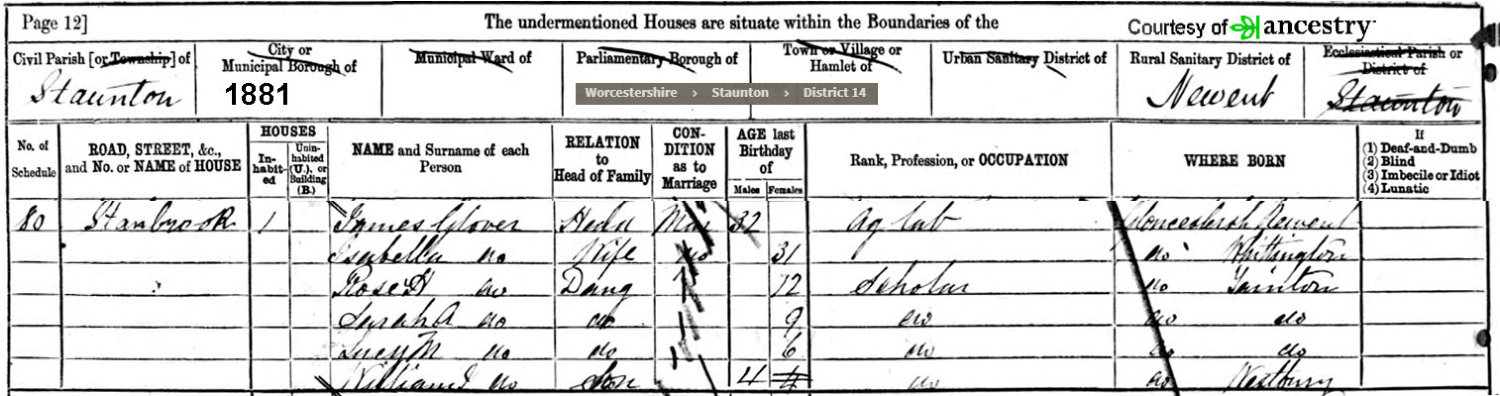 Page 12]
The undermentioned Houses are situate within the Boundaries of the
Courtesy of ancestry
Civil Parish [or Township] of
City or Municipal Borough of
Municipal Ward of
Parliamentary Borough of
Town or Village or Hamlet of
Urban Sanitary District of
Rural Sanitary District of
Ecclesiastical Parish or District of
Staunton
1881
Worcestershire › Staunton › District 14
Newent
Staunton
No. of Schedule
ROAD, STREET, &c., and No. or NAME of HOUSE
HOUSES
In-habit-ed
Unin-habited (U.), or Building (B.)
NAME and Surname of each Person
RELATION to Head of Family
CON-DITION as to Marriage
AGE last Birthday of
Males Females
Rank, Profession, or OCCUPATION
WHERE BORN
If
(1) Deaf-and-Dumb
(2) Blind
(3) Imbecile or Idiot
(4) Lunatic
80 Stanbrook 1 James Glover Head Mar 32 Ag Lab Newent
Isabella do Wife do 31 do Whittington
Rose H do Daug 12 Scholar do Tainton
Sarah A do do 9 do do do
Lucy M do do 6 do do do
William J do Son 4 4 do do Westbury